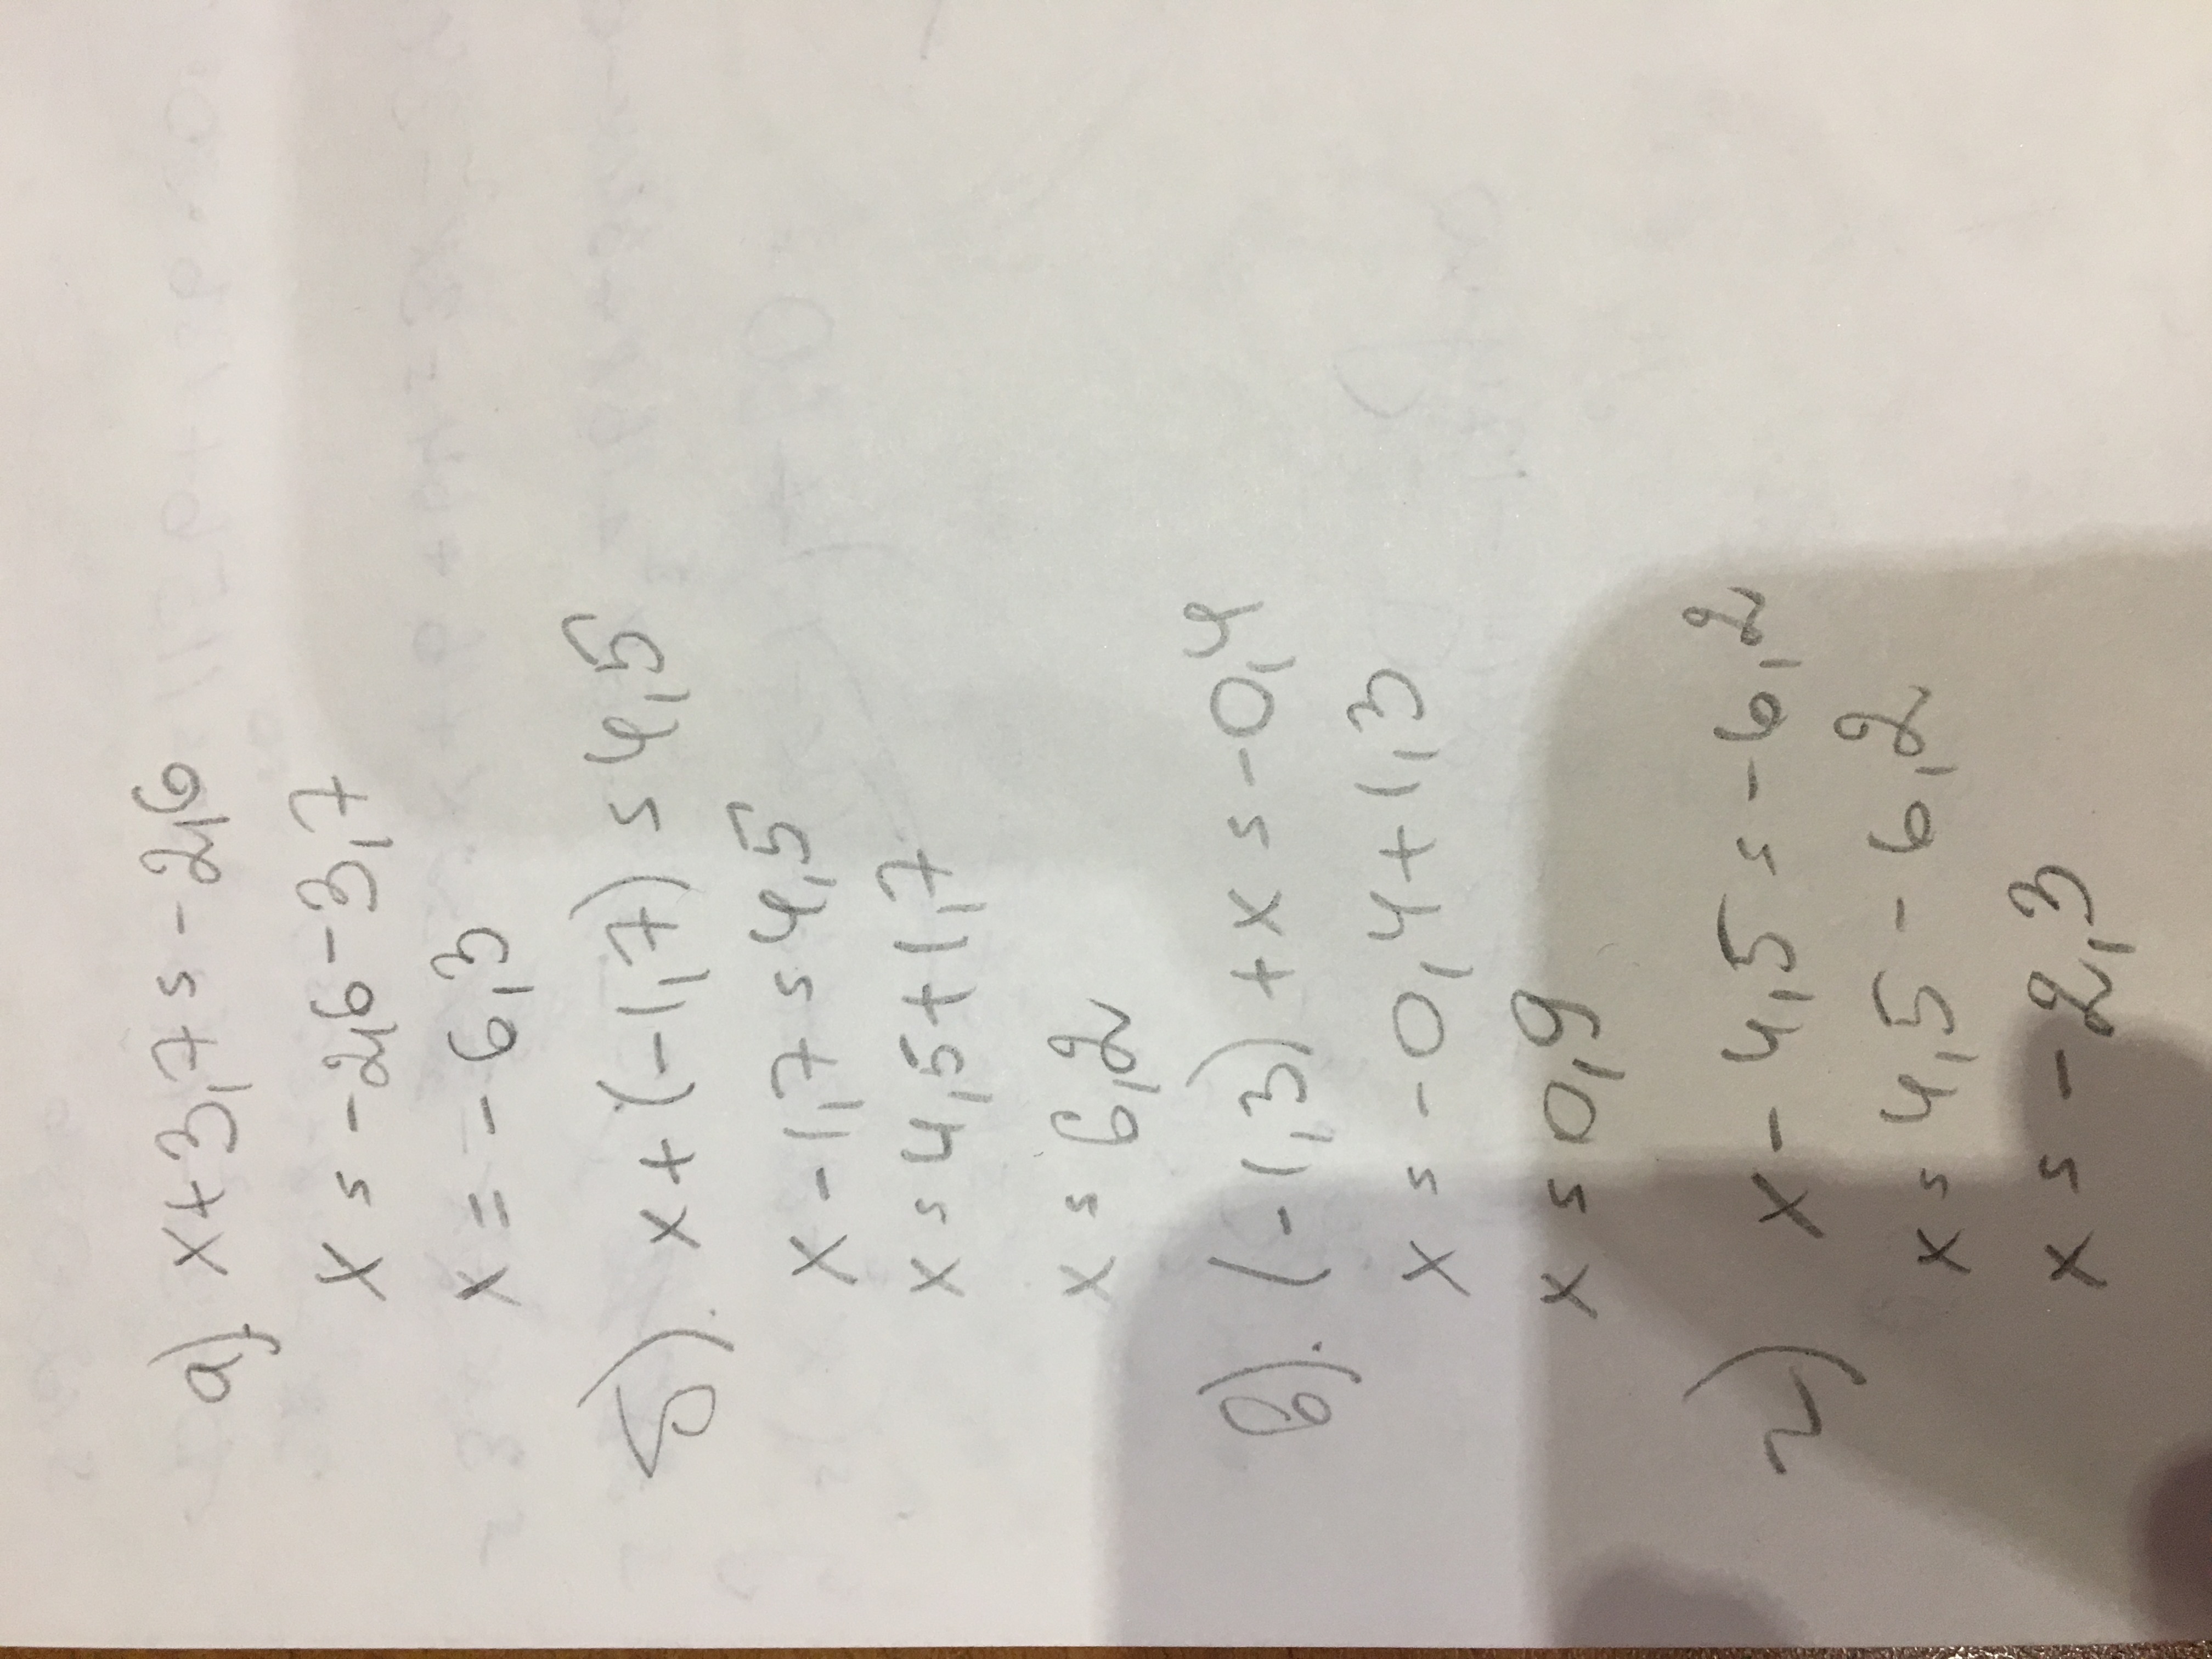 а). x+3,7=-2,6
x=-2,6-3,7
x=-6,3
б). x+(-1,7)=4,5
x-1,7=4,5
x=4,5+1,7
x=6,2
в). (-1,3)+x=-0,4
x=-0,4+1,3
x=0,9
г) x-4,5=-6,2
x=4,5-6,2
x=-2,3